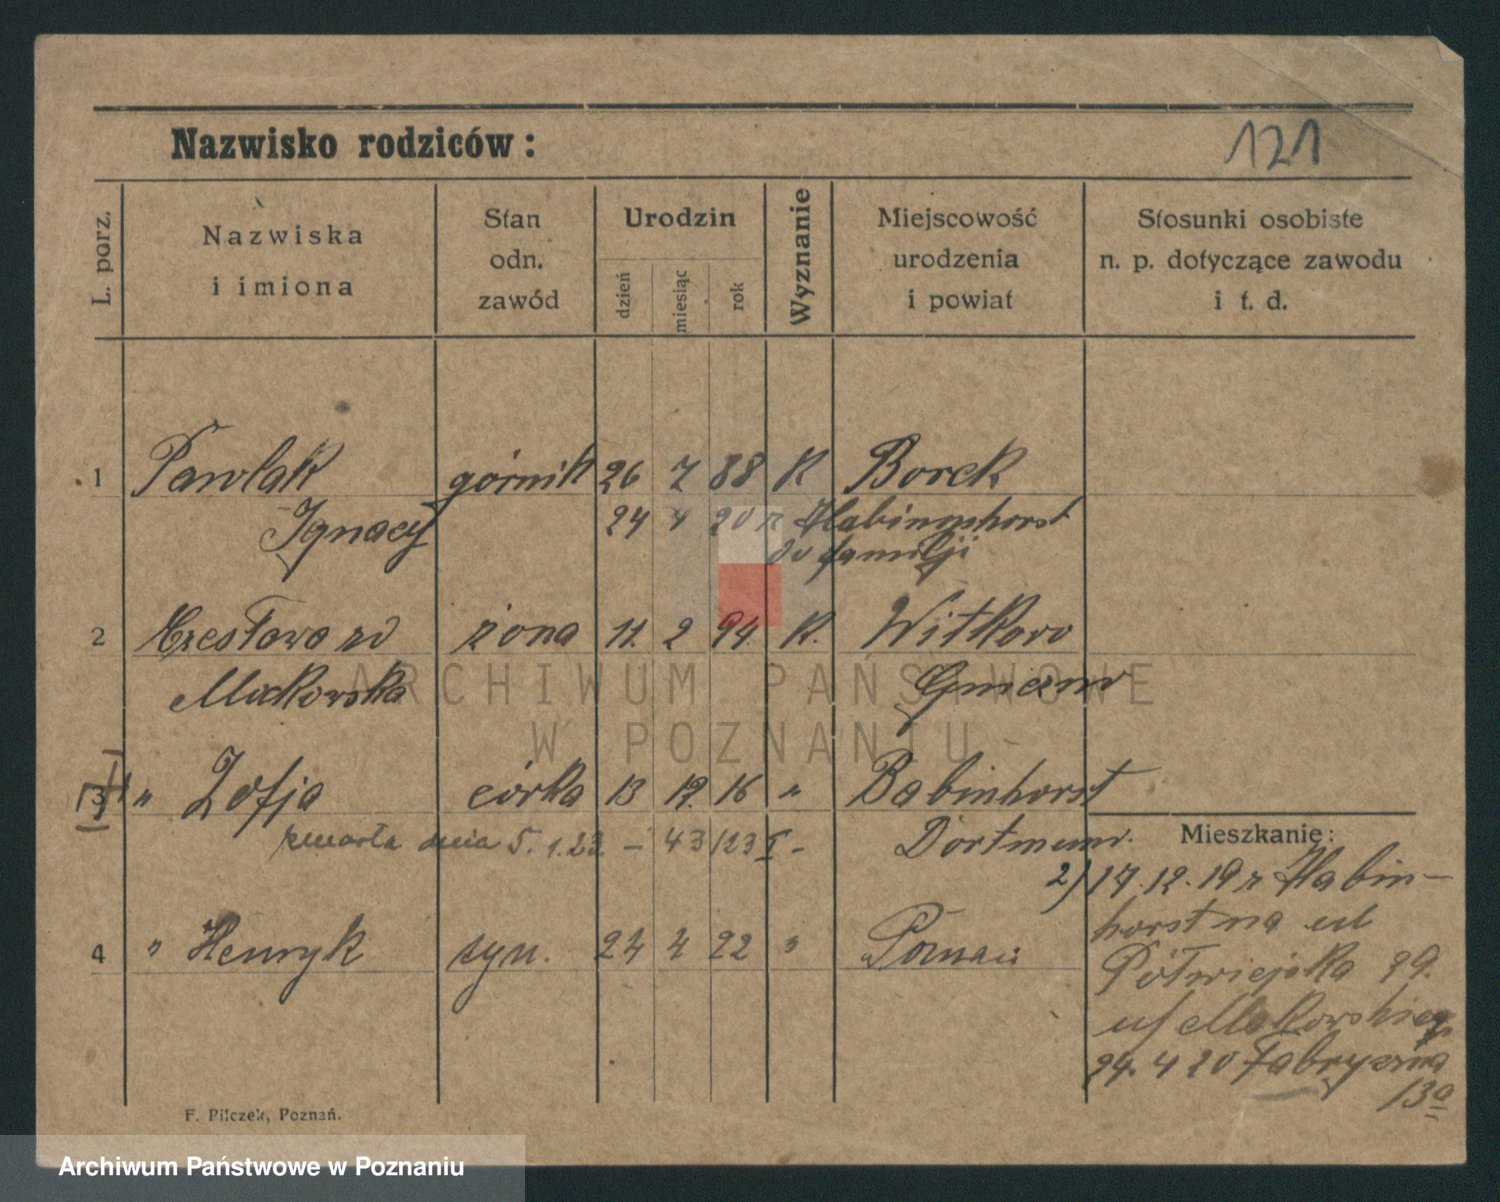 Nazwisko rodziców:
121
L. porz.
Nazwiska
i imiona
Stan
odn.
zawód
Urodzin
dzień
miesiąc
rok
Wyznanie
Miejscowość
urodzenia
i powiat
Stosunki osobiste
n. p. dotyczące zawodu
i t. d.
1 Pawlak górnik 26 7 88 K Borek
Ignacy 24 4 20 z Habinghorst
do familji
2 Czesława zd żona 11. 2 94. K. Witkowo
Makowska Gniezno
3 " Zofja córka 13 12. 16 " Babinhorst
zmarła dnia 5.1.23. – 43/23 I –
Dortmund.
4 " Henryk syn. 24 4 22 " Poznań
Mieszkanie:
2) 17.12.19 z Habin-
horst na ul
Półwiejska 29.
u/ Makowskiego
24.4 20 Fabryczna
13a
F. Pilczek, Poznań.
ARCHIWUM PAŃSTWOWE
W POZNANIU
Archiwum Państwowe w Poznaniu